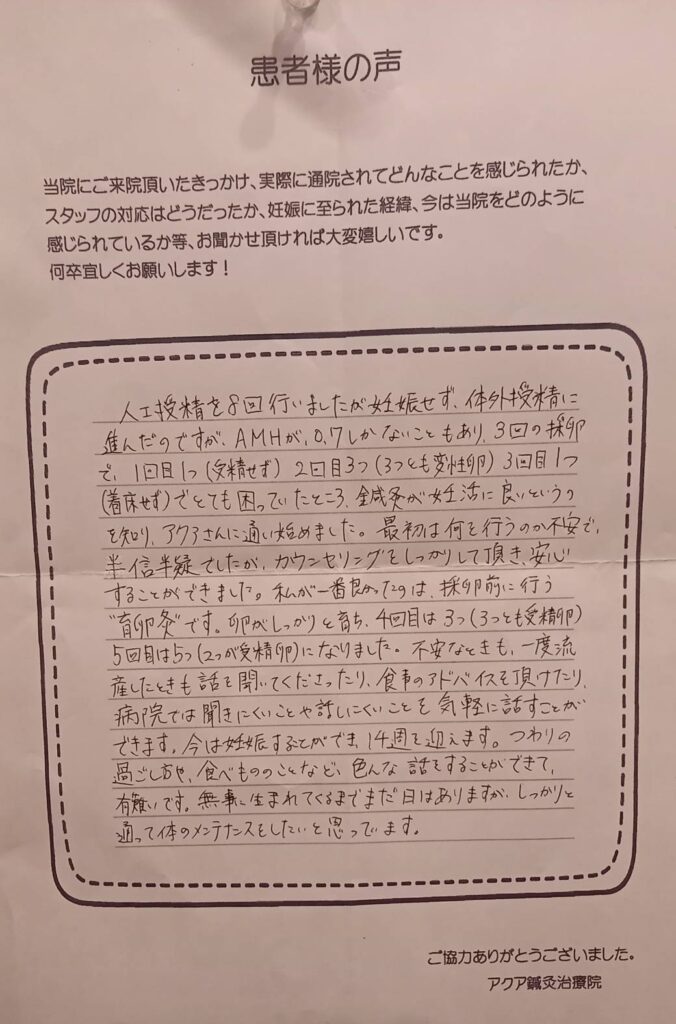 患者様の声
当院にご来院頂いたきっかけ、実際に通院されてどんなことを感じられたか、
スタッフの対応はどうだったか、妊娠に至られた経緯、今は当院をどのように
感じられているか等、お聞かせ頂ければ大変嬉しいです。
何卒宜しくお願いします！
人工授精を8回行いましたが妊娠せず、体外授精に
進んだのですが、AMHが、0.7しかないこともあり、3回の採卵
で、1回目1つ(受精せず) 2回目3つ(3つとも変性卵) 3回目1つ
(着床せず)でとても困っていたところ、鍼灸が妊活に良いというの
を知り、アクアさんに通い始めました。最初は何を行うのか不安で、
半信半疑でしたが、カウンセリングをしっかりして頂き、安心
することができました。私が一番良かったのは、採卵前に行う
"育卵灸"です。卵がしっかりと育ち、4回目は3つ(3つとも受精卵)
5回目は5つ(2つが受精卵)になりました。不安なときも、一度流
産したときも話を聞いてくださったり、食事のアドバイスを頂けたり、
病院では聞きにくいことや話しにくいことを気軽に話すことが
できます。今は妊娠することができ、14週を迎えます。つわりの
過ごし方や、食べもののことなど、色んな話をすることができて、
有難いです。無事に生まれてくるまでまだ日はありますが、しっかりと
通って体のメンテナンスをしたいと思っています。
ご協力ありがとうございました。
アクア鍼灸治療院